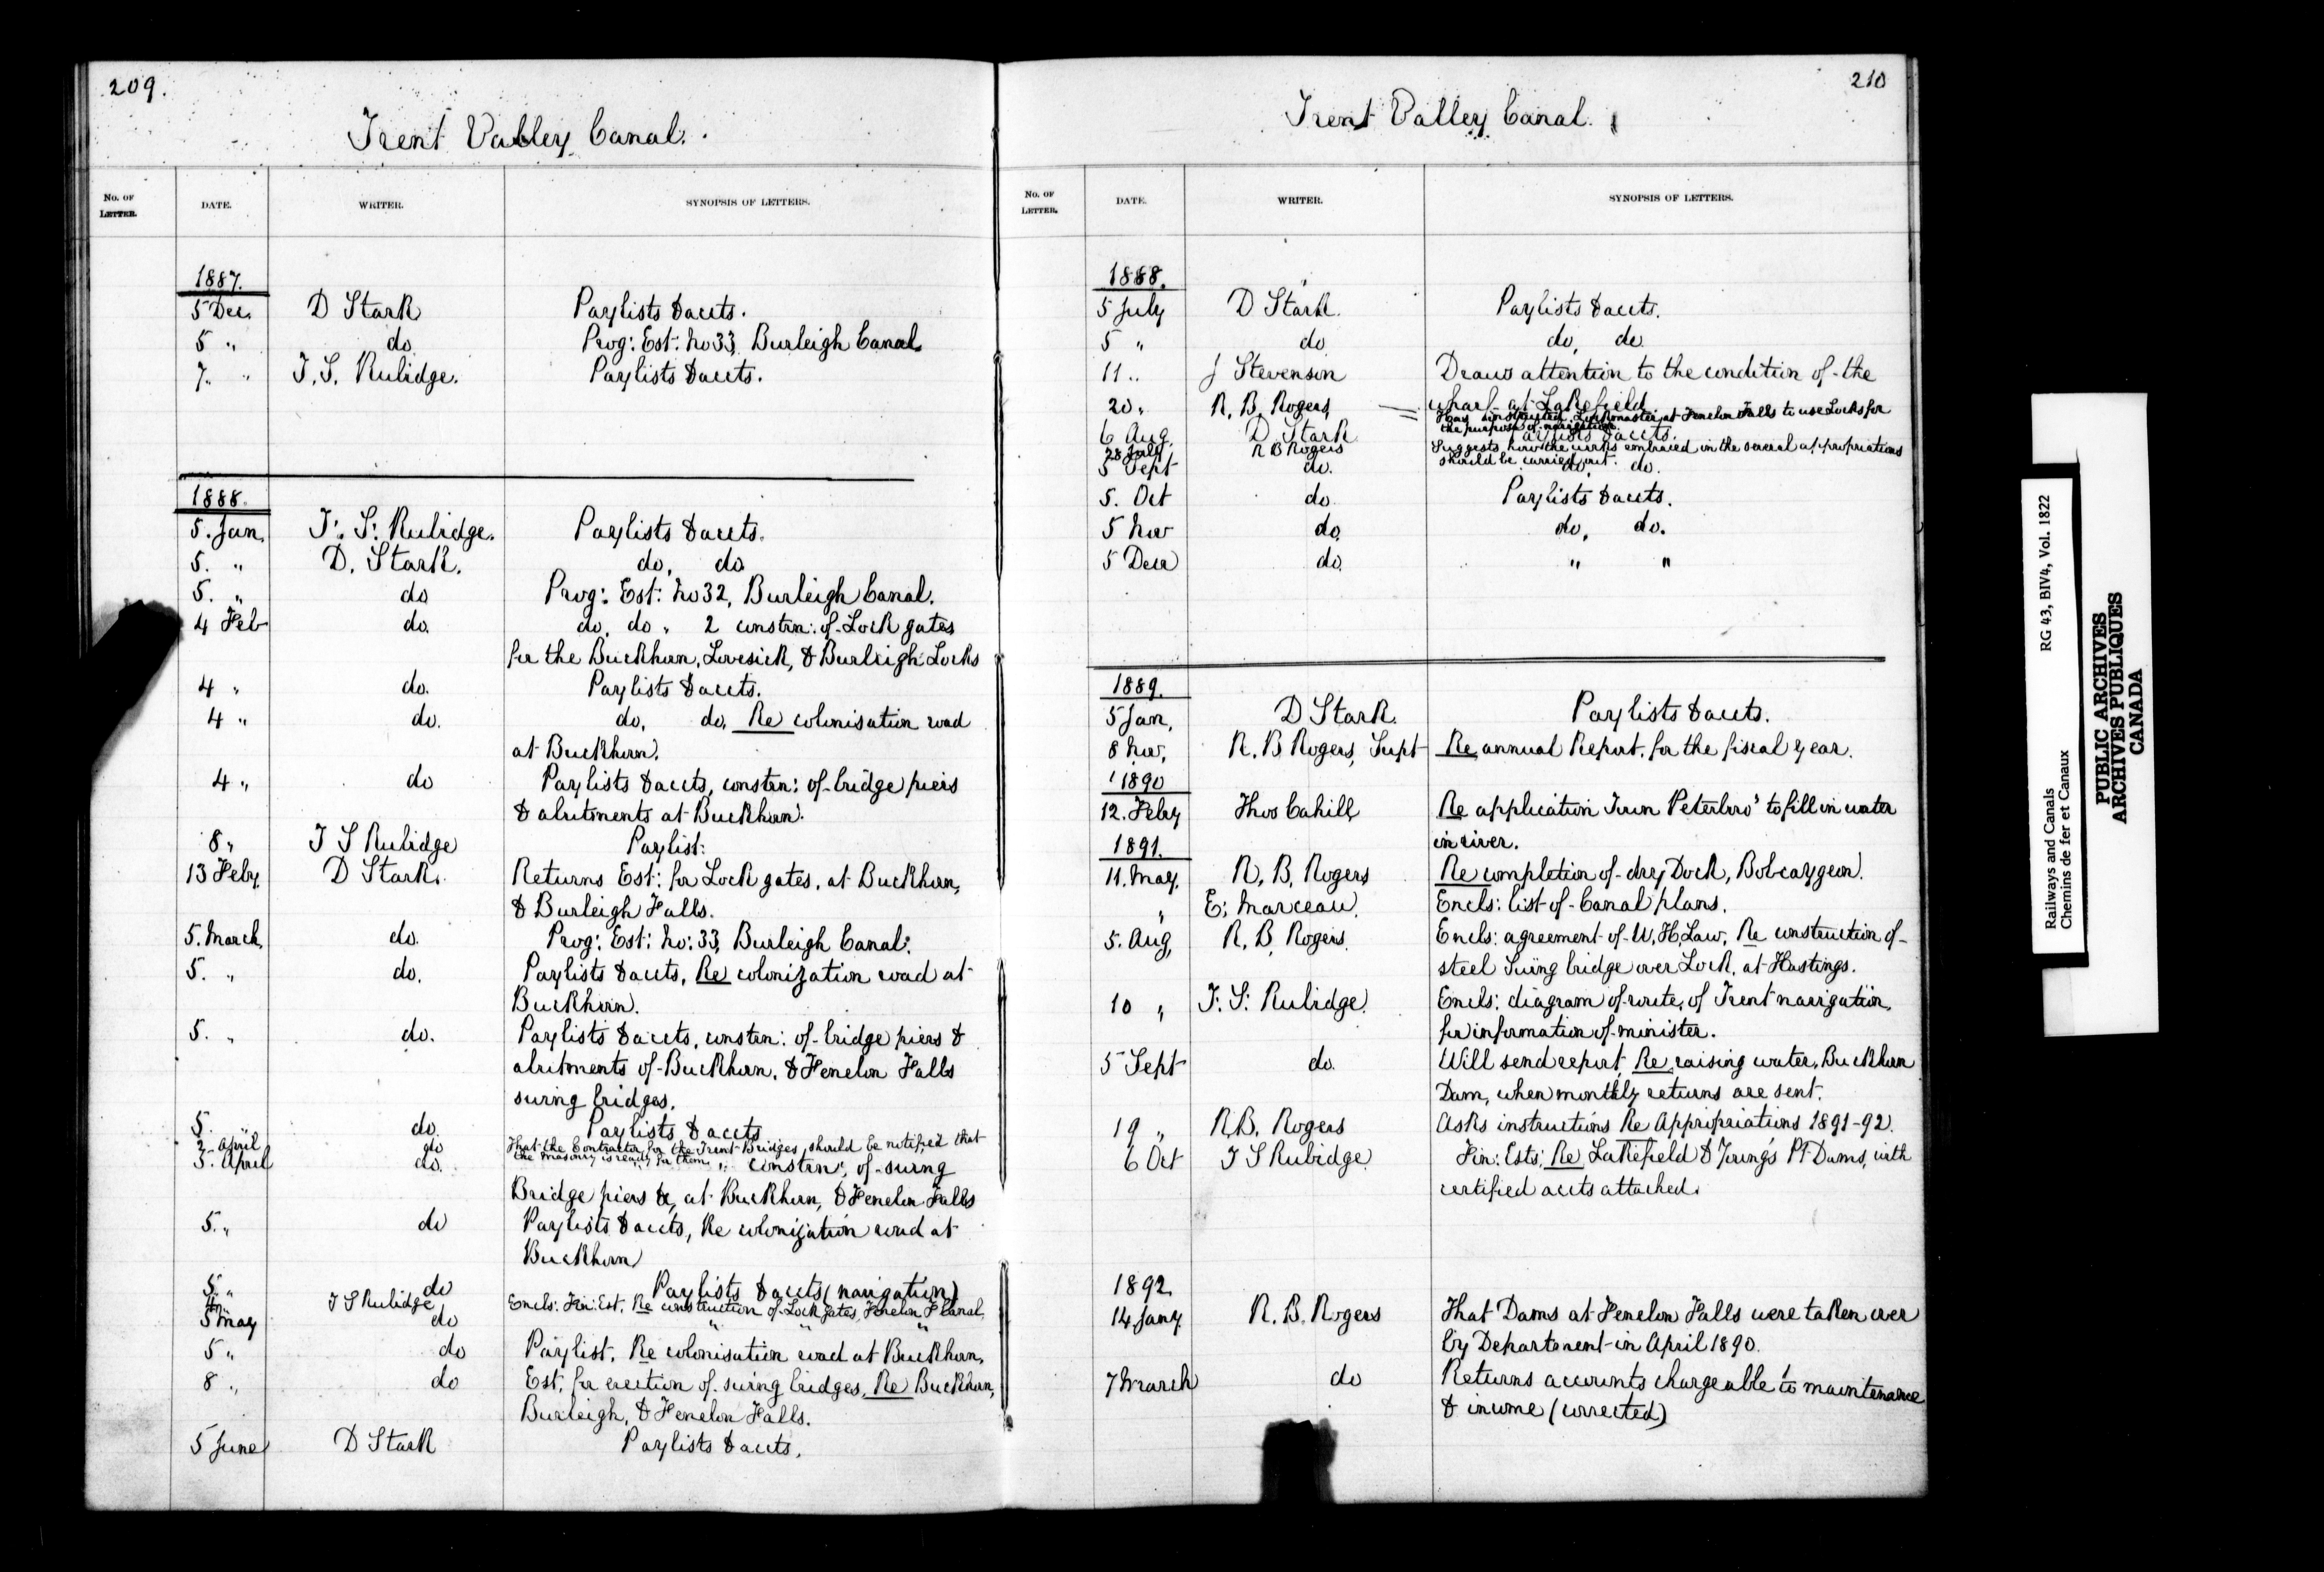 209.
Trent Valley Canal.
No. OF LETTER. DATE. WRITER. SYNOPSIS OF LETTERS.
1887.
5 Dec. D Stark Paylists & accts.
5 " do Prog: Est: No 33, Burleigh Canal.
7. " T. S. Rubidge. Paylists & accts.
1888.
5. Jan. T. S. Rubidge. Paylists & accts.
5. " D. Stark. do, do
5. " do Prog: Est: No 32, Burleigh Canal.
4 Feb do. do, do " 2 constrn: of Lock gates
for the Buckhorn, Lovesick, & Burleigh Locks
4 " do. Paylists & accts.
4 " do. do, do, Re colonisation road
at Buckhorn.
4 " do Paylists & accts, constrn: of bridge piers
& abutments at Buckhorn.
8 " T S Rubidge Paylist:
13 Feby. D Stark. Returns Est: for Lock gates, at Buckhorn,
& Burleigh Falls.
5. March, do. Prog: Est: No: 33, Burleigh Canal.
5. " do. Paylists & accts, Re colonization road at
Buckhorn.
5. " do. Paylists & accts, constrn: of bridge piers &
abutments of Buckhorn, & Fenelon Falls
swing bridges.
5. " do. Paylists & accts
2 April do That the Contractor for the Trent Bridges, should be notified that
the masonry is ready for them
5. April do. " " constrn: of swing
Bridge piers &c, at Buckhorn, & Fenelon Falls
5. " do Paylists & accts, Re colonization road at
Buckhorn
5. " do Paylists & accts (navigation)
4 " T S Rubidge Encls: Fin: Est. Re construction of Lock gates, Fenelon F Canal,
5 May do " " "
5 " do Paylist. Re colonisation road at Buckhorn,
8 " do Est. for erection of swing bridges, Re Buckhorn,
Burleigh, & Fenelon Falls.
5 June D Stark Paylists & accts.
210
Trent Valley Canal.
No. OF LETTER. DATE. WRITER. SYNOPSIS OF LETTERS.
1888.
5 July D Stark. Paylists & accts.
5 " do do, do
11 " J Stevenson Draws attention to the condition of the
wharf at Lakefield.
20 " R. B. Rogers, Has instructed Lockmaster at Fenelon Falls to use Locks for
the purpose of navigation.
6 Aug. D Stark Paylists & accts.
28 July R B Rogers Suggests how the works embraced in the several appropriations
should be carried out.
5 Sept do. do. do.
5. Oct do. Paylists & accts.
5 Nov do, do, do.
5 Decr do. " "
1889.
5 Jan, D Stark. Paylists & accts.
8 Nov, R. B Rogers, Supt Re, annual Report, for the fiscal year.
1890
12. Feby Thos Cahill, Re application Town Peterboro' to fill in water
in river.
1891.
11. May. R. B. Rogers Re completion of dry Dock, Bobcaygeon.
" E: Marceau. Encls: list of Canal plans.
5. Aug, R. B Rogers. Encls: agreement of W. H, Law, Re construction of
steel Swing bridge over Lock, at Hastings.
10 " T: S: Rubidge. Encls: diagram of route, of Trent navigation,
for information of minister.
5 Sept do. Will send report, Re, raising water, Buckhorn
Dam, when monthly returns are sent.
19 " R.B. Rogers Asks instructions Re Appropriations 1891-92.
6 Oct T S Rubidge Fin: Ests: Re Lakefield & Young's Pt Dams, with
certified accts attached.
1892.
14, Jany R. B. Rogers That Dams at Fenelon Falls were taken over
by Department in April 1890.
7 March do Returns accounts chargeable to maintenance
& income (corrected)
Railways and Canals RG 43, BIV4, Vol. 1822
Chemins de fer et Canaux
PUBLIC ARCHIVES
ARCHIVES PUBLIQUES
CANADA